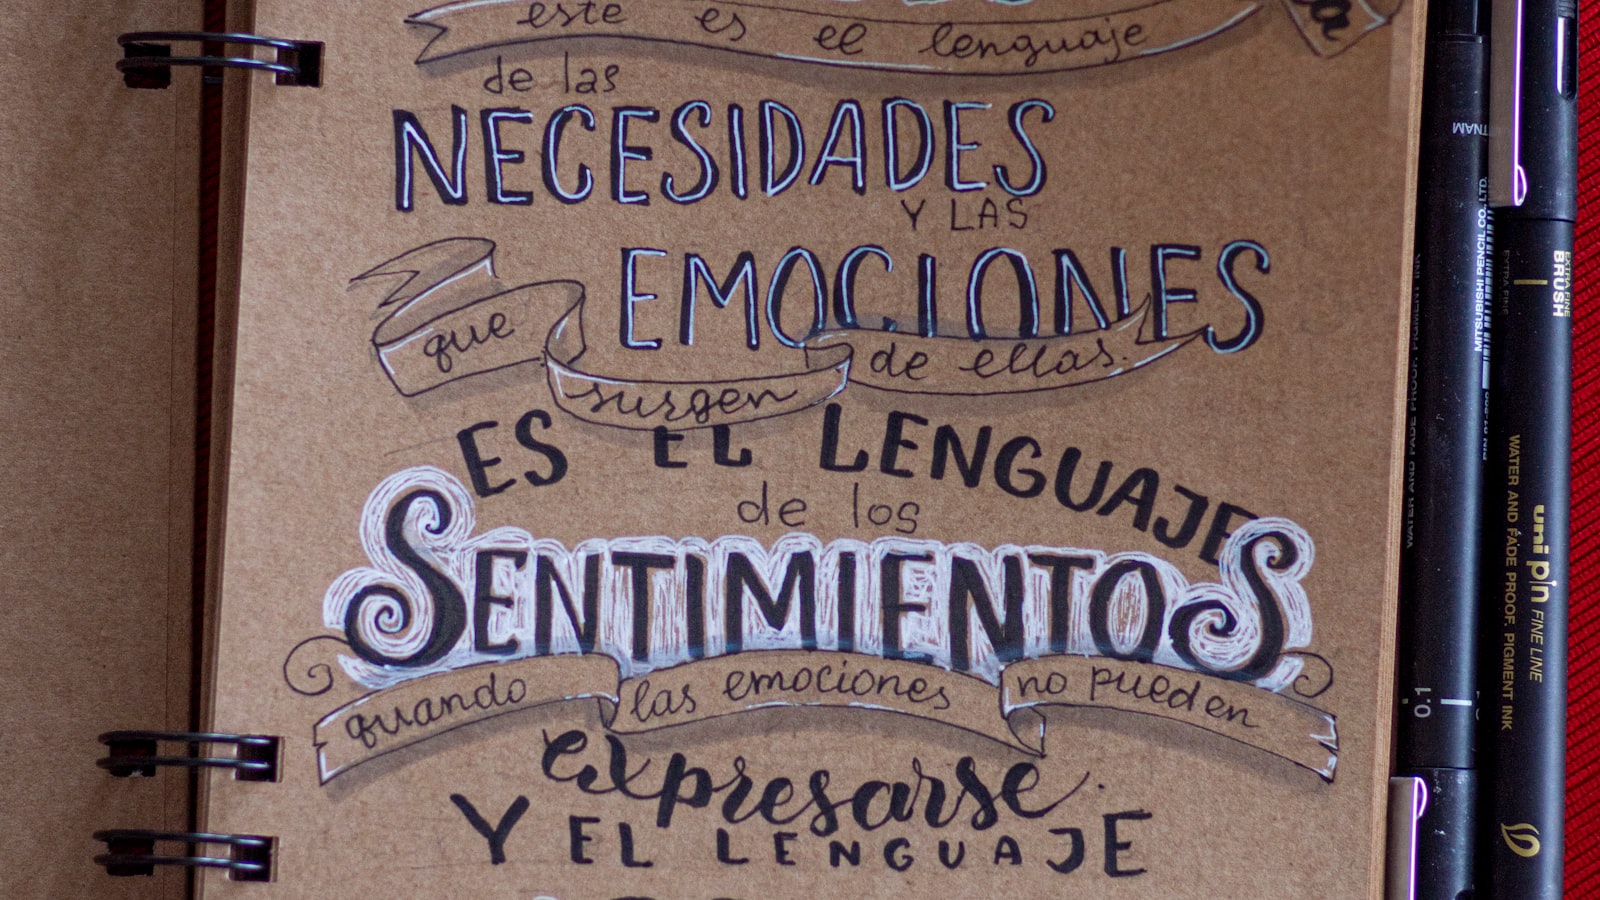 este es el lenguaje
de las
NECESIDADES
Y LAS
EMOCIONES
que surgen de ellas.
ES EL LENGUAJE
de los
SENTIMIENTOS
quando las emociones no pueden
expresarse.
Y EL LENGUAJE
TNAM
MITSUBISHI PENCIL CO., LTD.
WATER AND FADE PROOF, PIGMENT INK
0.1
EXTRA FINE
BRUSH
EXTRA FINE
uni pin FINE LINE
WATER AND FADE PROOF, PIGMENT INK